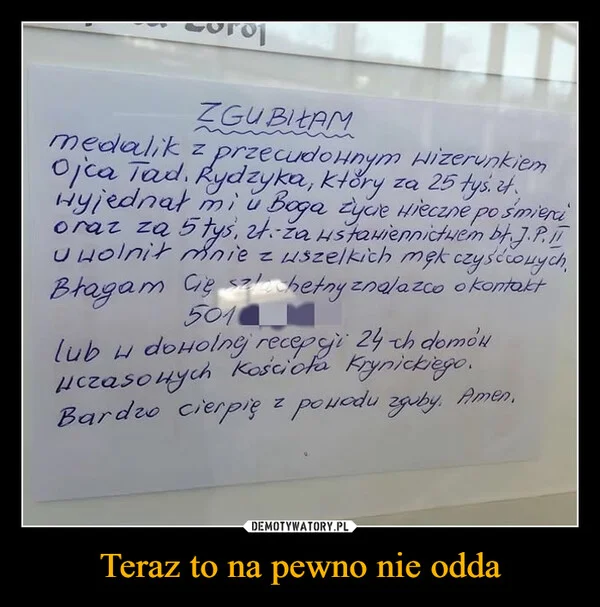 ZGUBIŁAM
medalik z przecudownym wizerunkiem
Ojca Tad. Rydzyka, który za 25 tyś. zł.
wyjednał mi u Boga życie wieczne po śmierci
oraz za 5 tyś. zł.- za wstawiennictwem bł. J.P. II
uwolnił mnie z wszelkich mąk czyśćcowych.
Błagam Cię szlachetny znalazco o kontakt
501
lub w dowolnej recepcji 24-ch domów
wczasowych Kościoła Krynickiego.
Bardzo cierpię z powodu zguby. Amen.
DEMOTYWATORY.PL
Teraz to na pewno nie odda